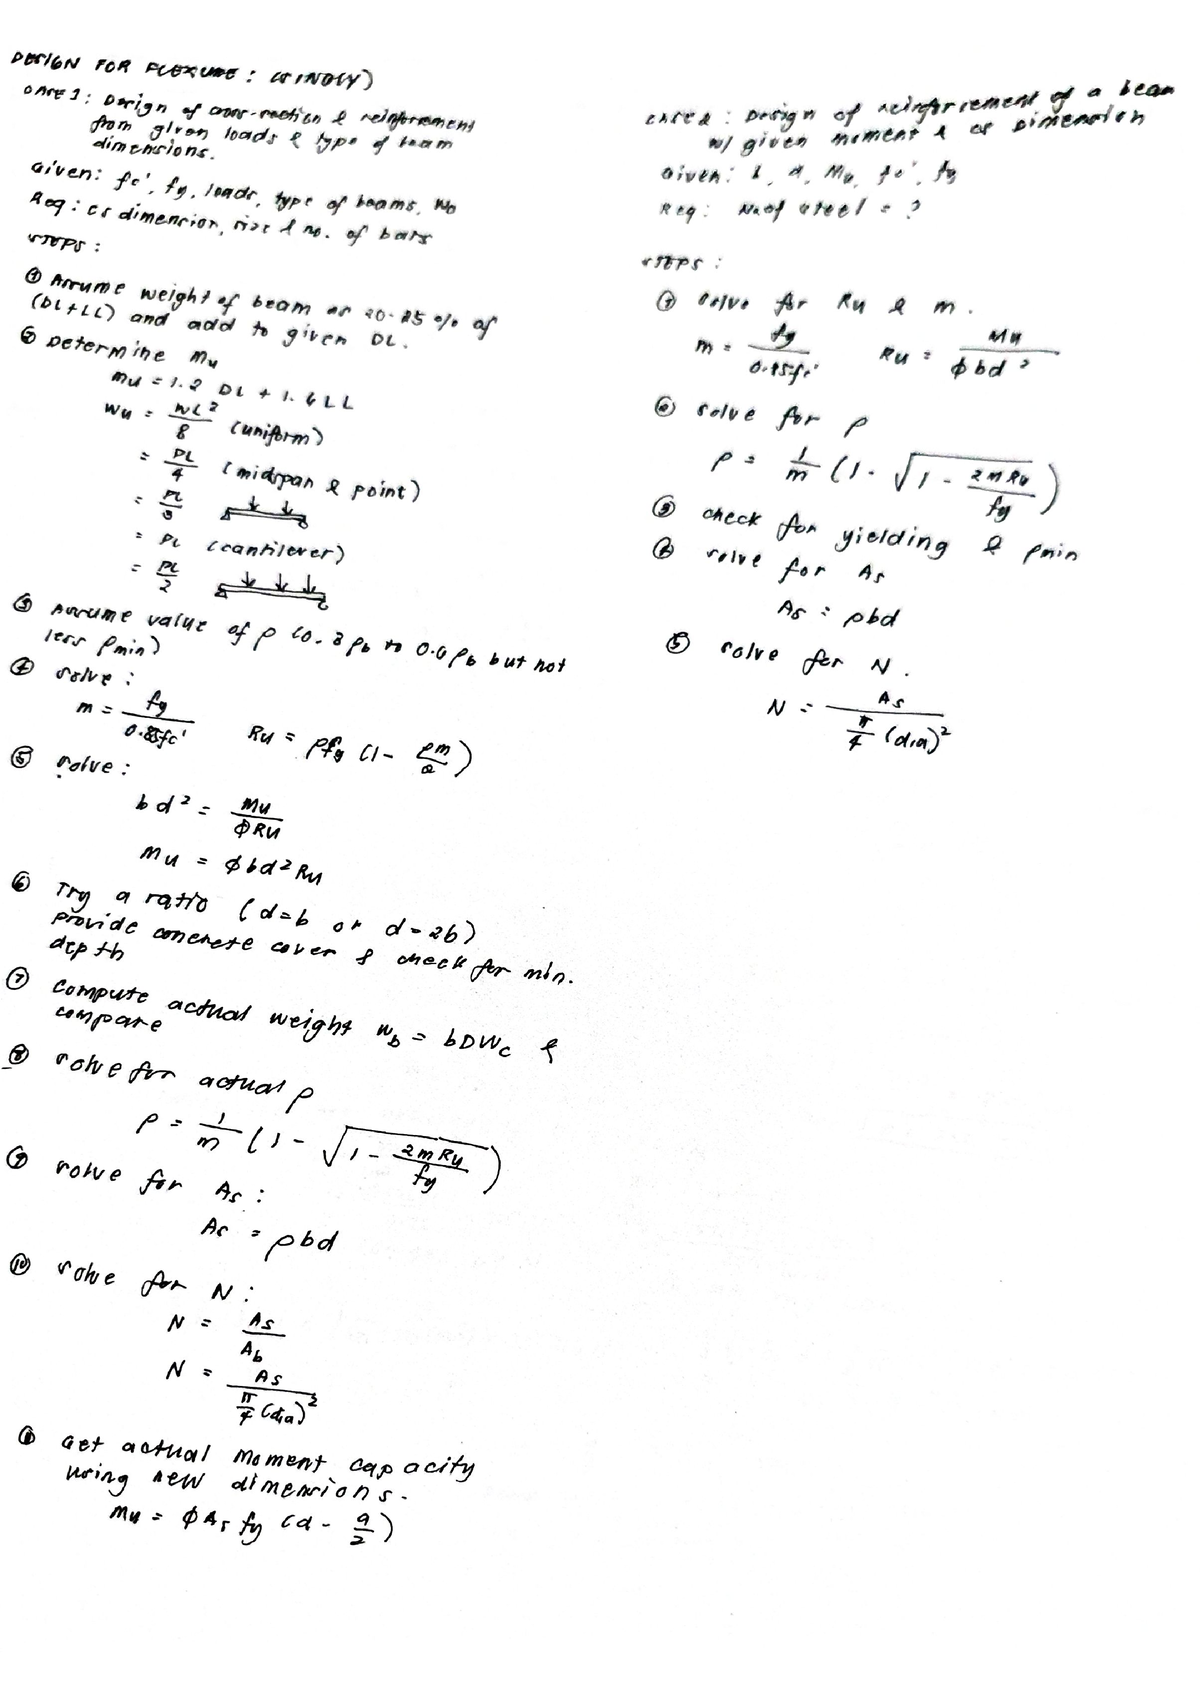 DESIGN FOR FLEXURE: (SINGLY)
CASE 1: Design of cross-section & reinforcement
from given loads & type of beam
dimensions.
Given: fc', fy, loads, type of beams, Wo
Req: cs dimension, size & no. of bars
STEPS:
① Assume weight of beam as 20-25% of
(DL+LL) and add to given DL.
② Determine Mu
Mu = 1.2 DL + 1.6 LL
Wu = WL²/8 (uniform)
= PL/4 (midspan & point)
= PL/3
= PL (cantilever)
= PL/2
③ Assume value of ρ (0.3ρb to 0.6ρb but not
less ρmin)
④ solve:
m = fy/0.85fc' Ru = ρfy (1 - ρm/2)
⑤ solve:
bd² = Mu/ϕRu
Mu = ϕbd²Ru
⑥ Try a ratio (d=b or d=2b)
provide concrete cover & check for min.
depth
⑦ compute actual weight Wb = bDWc &
compare
⑧ solve for actual ρ
ρ = 1/m (1 - √(1 - 2mRu/fy))
⑨ solve for As:
As = ρbd
⑩ solve for N:
N = As/Ab
N = As/(π/4 (dia)²)
Get actual moment capacity
using new dimensions.
Mu = ϕAs fy (d - a/2)
CASE 2: Design of reinforcement of a beam
w/ given moment & cs dimension
Given: b, d, Mu, fc', fy
Req: No. of steel = ?
STEPS:
① solve for Ru & m.
m = fy/0.85fc' Ru = Mu/ϕbd²
② solve for ρ
ρ = 1/m (1 - √(1 - 2mRu/fy))
③ check for yielding & ρmin
④ solve for As
As = ρbd
⑤ solve for N.
N = As/(π/4 (dia)²)